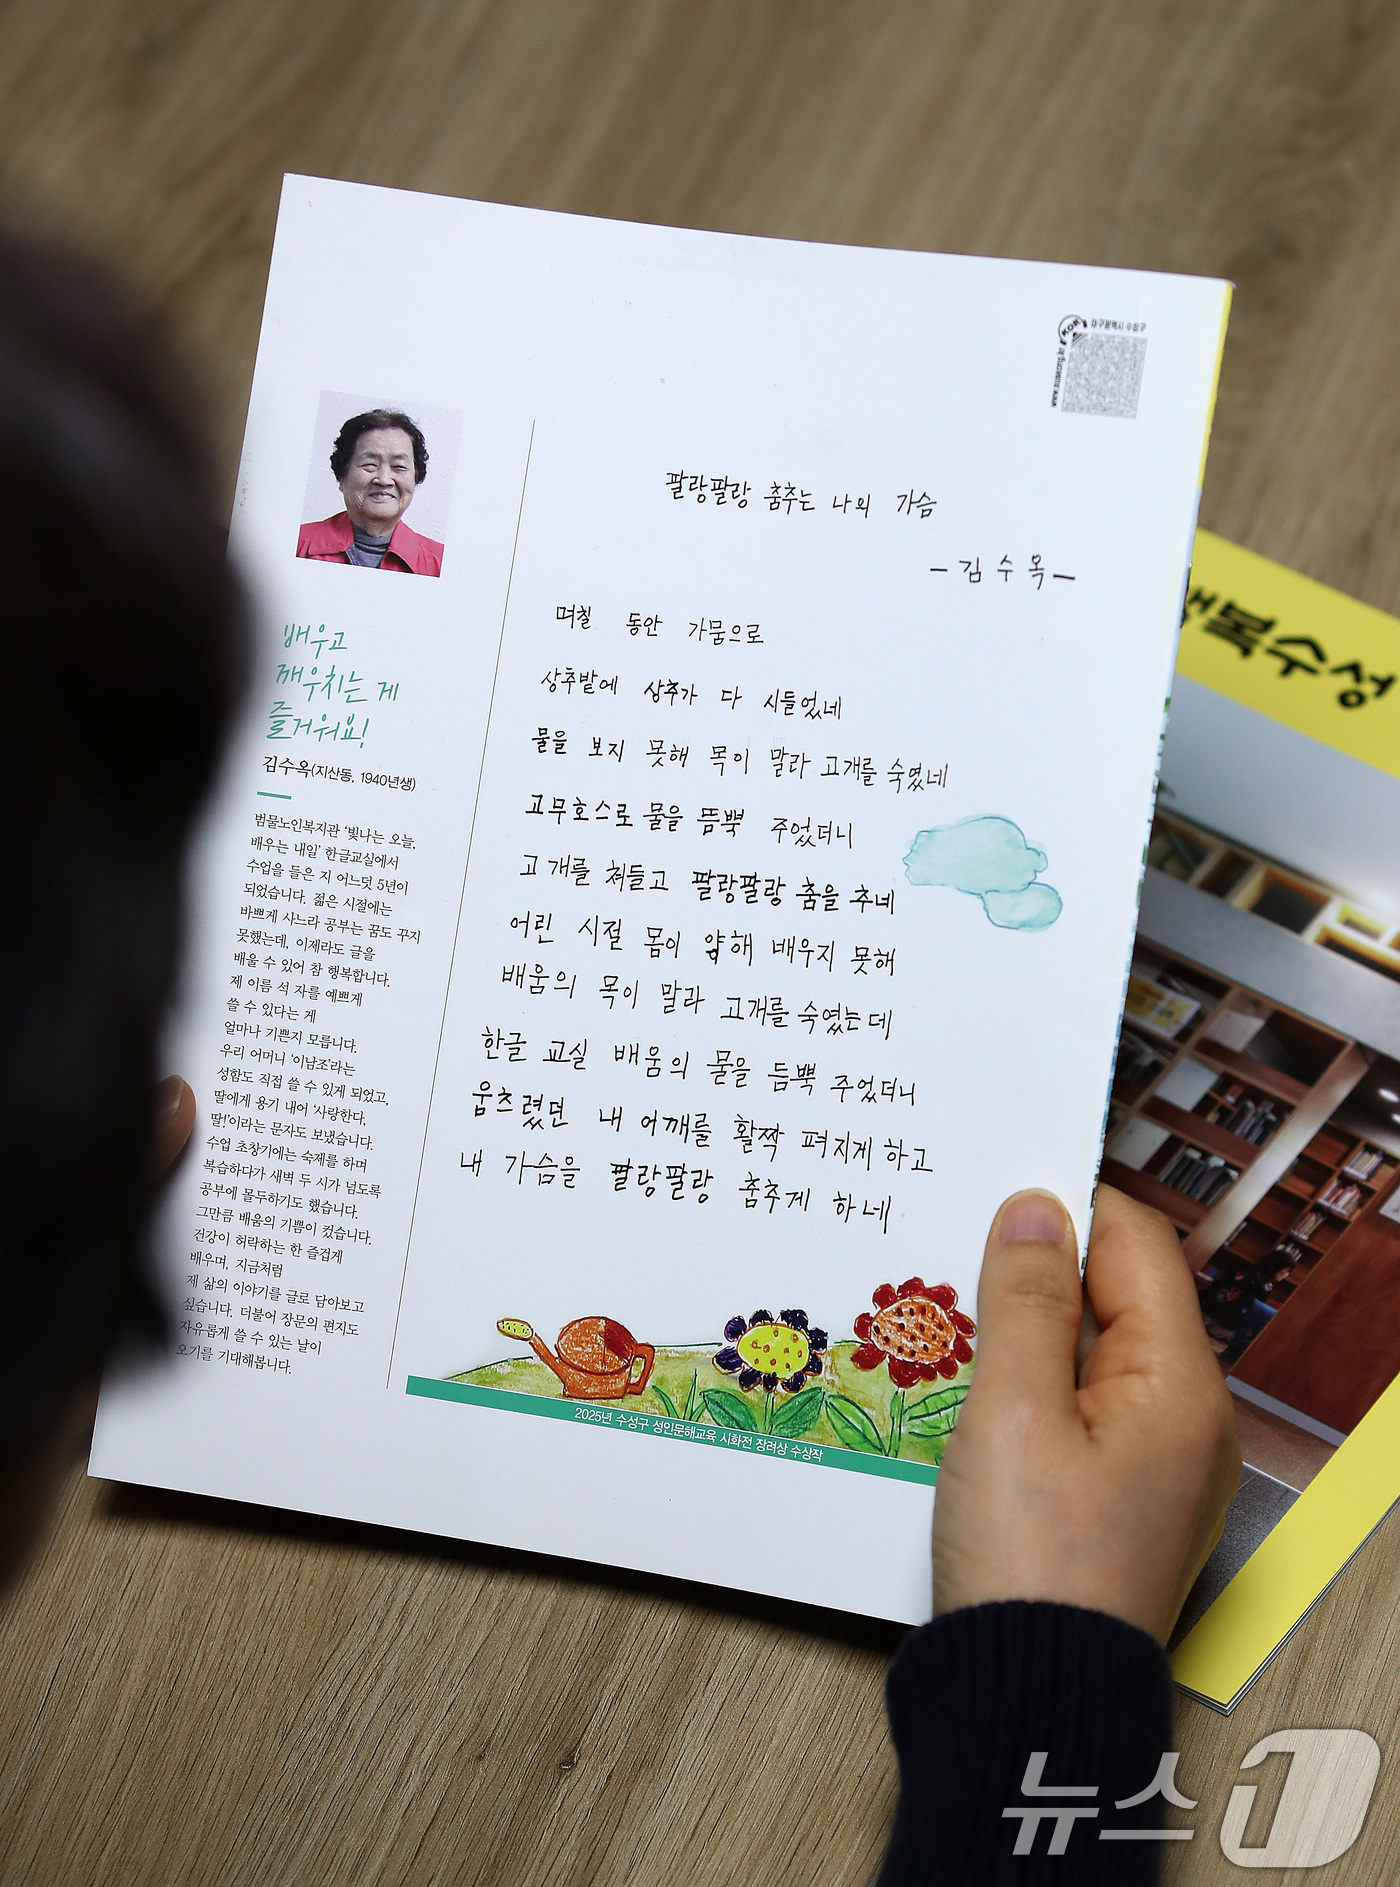 대구광역시 수성구
팔랑팔랑 춤추는 나의 가슴
- 김수옥 -
며칠 동안 가뭄으로
상추밭에 상추가 다 시들었네
물을 보지 못해 목이 말라 고개를 숙였네
고무호스로 물을 듬뿍 주었더니
고개를 쳐들고 팔랑팔랑 춤을 추네
어린 시절 몸이 약해 배우지 못해
배움의 목이 말라 고개를 숙였는데
한글 교실 배움의 물을 듬뿍 주었더니
움츠렸던 내 어깨를 활짝 펴지게 하고
내 가슴을 팔랑팔랑 춤추게 하네
2025년 수성구 성인문해교육 시화전 장려상 수상작
배우고
깨우치는 게
즐거워요!
김수옥(지산동, 1940년생)
범물노인복지관 '빛나는 오늘,
배우는 내일' 한글교실에서
수업을 들은 지 어느덧 5년이
되었습니다. 젊은 시절에는
바쁘게 사느라 공부는 꿈도 꾸지
못했는데, 이제라도 글을
배울 수 있어 참 행복합니다.
제 이름 석 자를 예쁘게
쓸 수 있다는 게
얼마나 기쁜지 모릅니다.
우리 어머니 '이남조'라는
성함도 직접 쓸 수 있게 되었고,
딸에게 용기 내어 '사랑한다,
딸!'이라는 문자도 보냈습니다.
수업 초창기에는 숙제를 하며
복습하다가 새벽 두 시가 넘도록
공부에 몰두하기도 했습니다.
그만큼 배움의 기쁨이 컸습니다.
건강이 허락하는 한 즐겁게
배우며, 지금처럼
제 삶의 이야기를 글로 담아보고
싶습니다. 더불어 장문의 편지도
자유롭게 쓸 수 있는 날이
오기를 기대해봅니다.
복수성
뉴스1